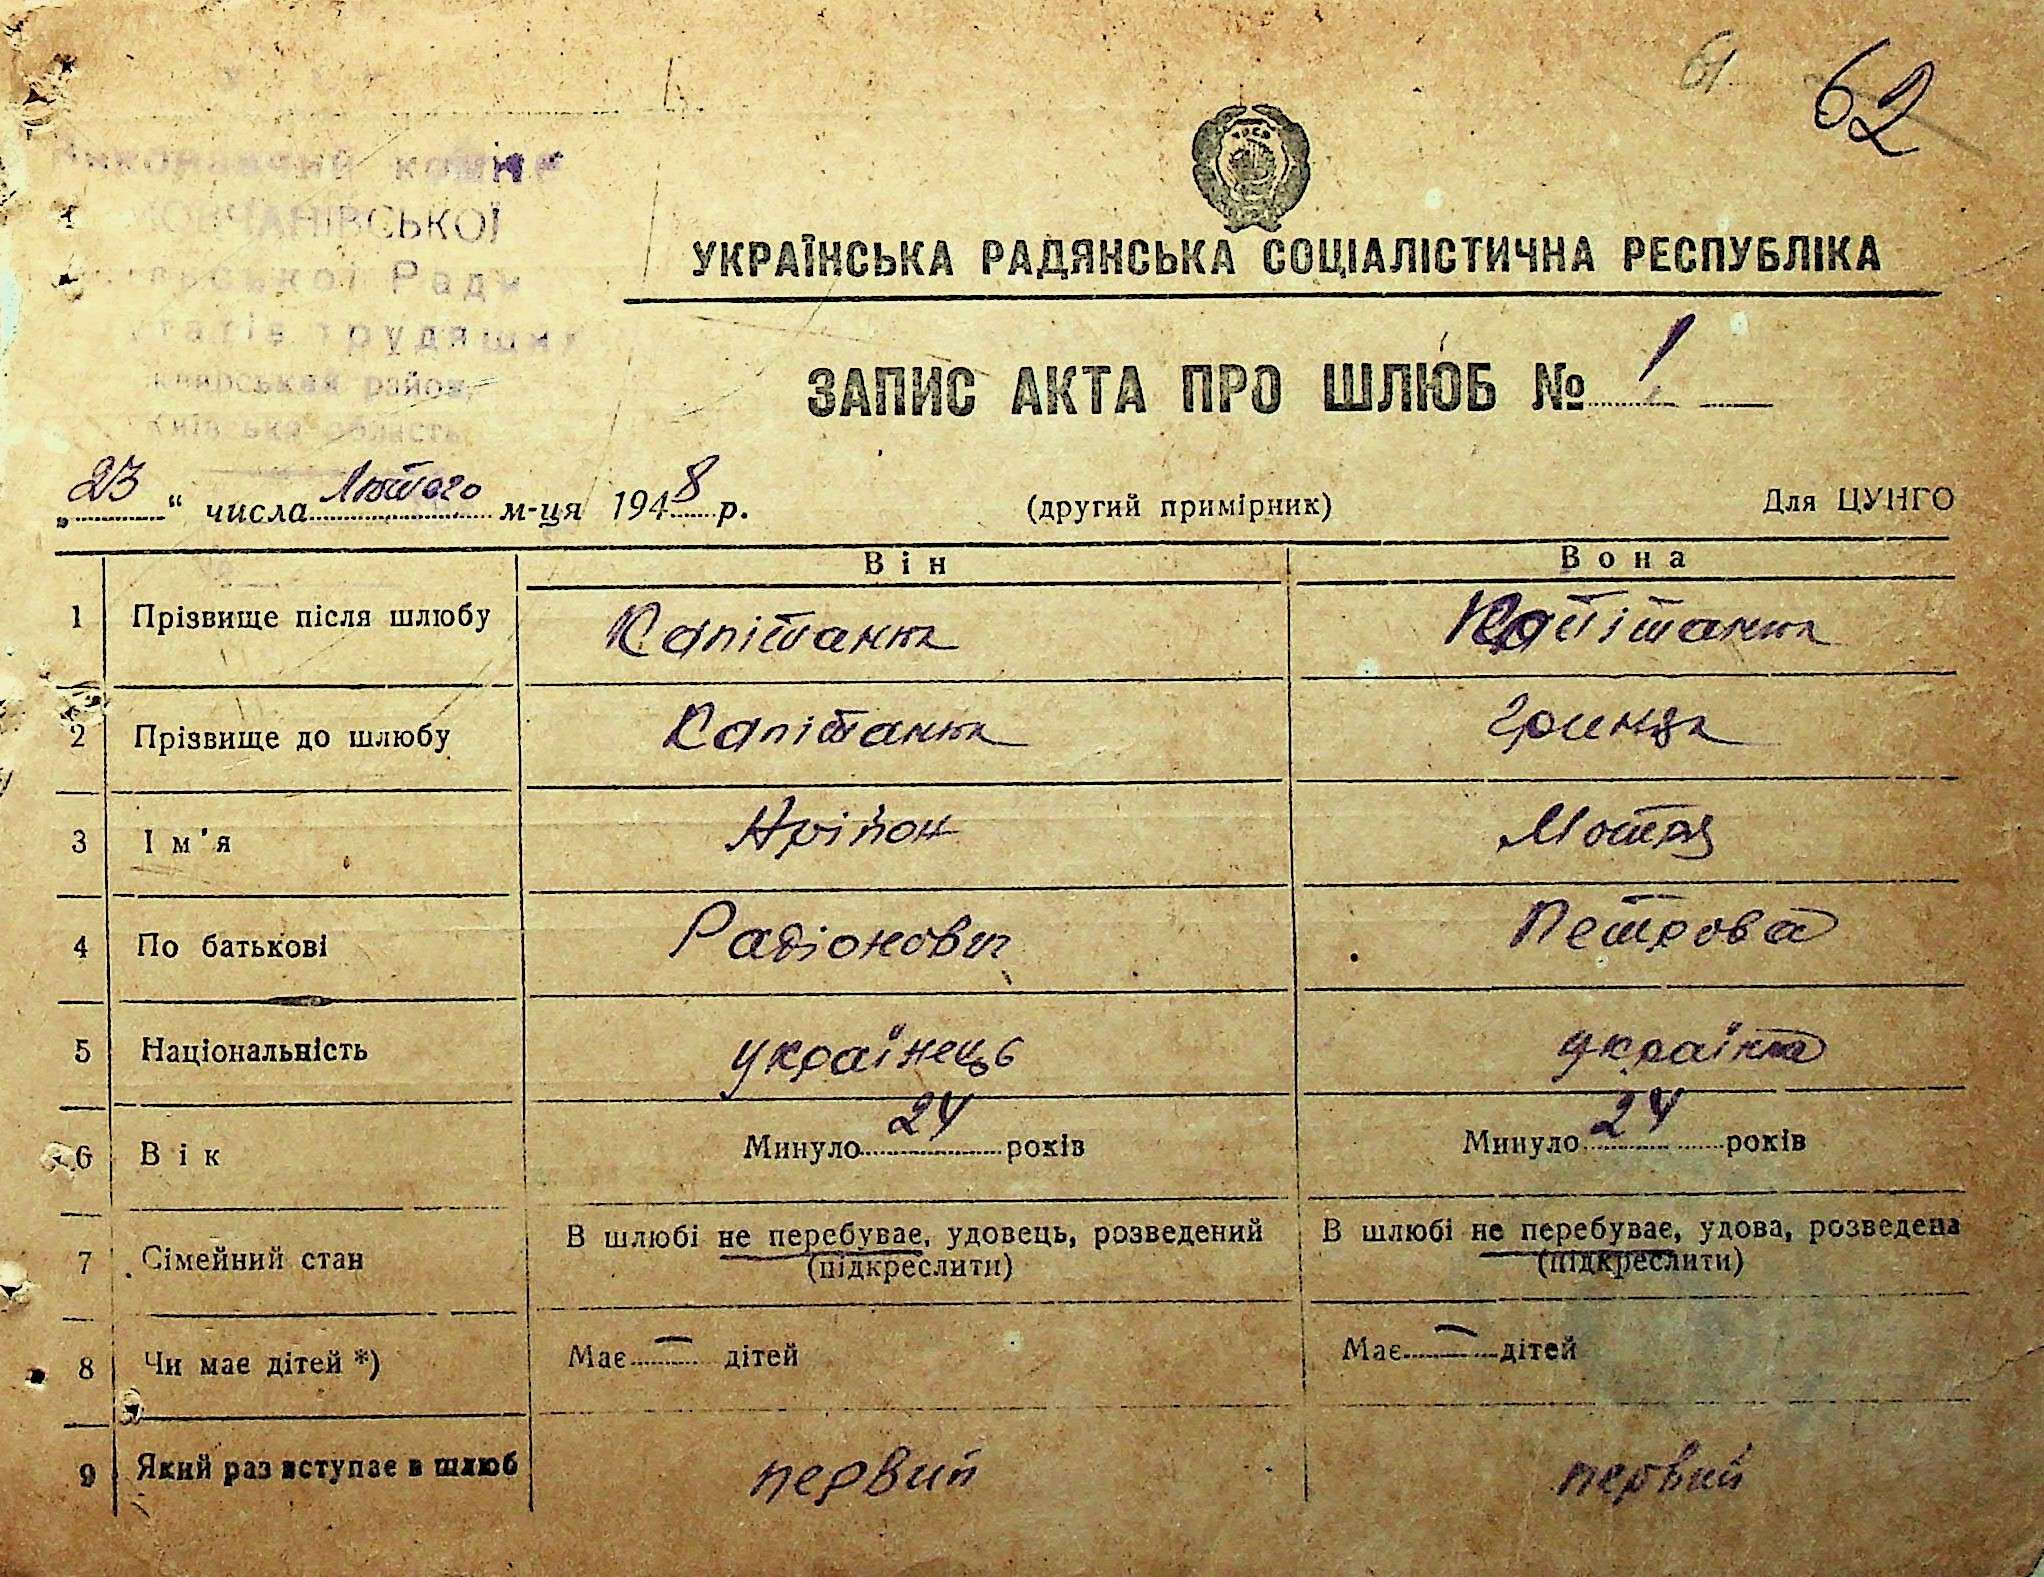 61
62
Виконавчий коміте
МОВЧАНІВСЬКОЇ
Ради
трудящих
район,
область
УКРАЇНСЬКА РАДЯНСЬКА СОЦІАЛІСТИЧНА РЕСПУБЛІКА
ЗАПИС АКТА ПРО ШЛЮБ № 1
„23“ числа Лютого м-ця 1948 р. (другий примірник) Для ЦУНГО
Він Вона
1 Прізвище після шлюбу Капітанюк Капітанюк
2 Прізвище до шлюбу Капітанюк
3 Ім'я Мотря
4 По батькові Радіонович Петрова
5 Національність українець українка
6 Вік Минуло 24 років Минуло 24 років
7 Сімейний стан В шлюбі не перебуває, удовець, розведений (підкреслити) В шлюбі не перебуває, удова, розведена (підкреслити)
8 Чи має дітей *) Має — дітей Має — дітей
9 Який раз вступає в шлюб первий первий